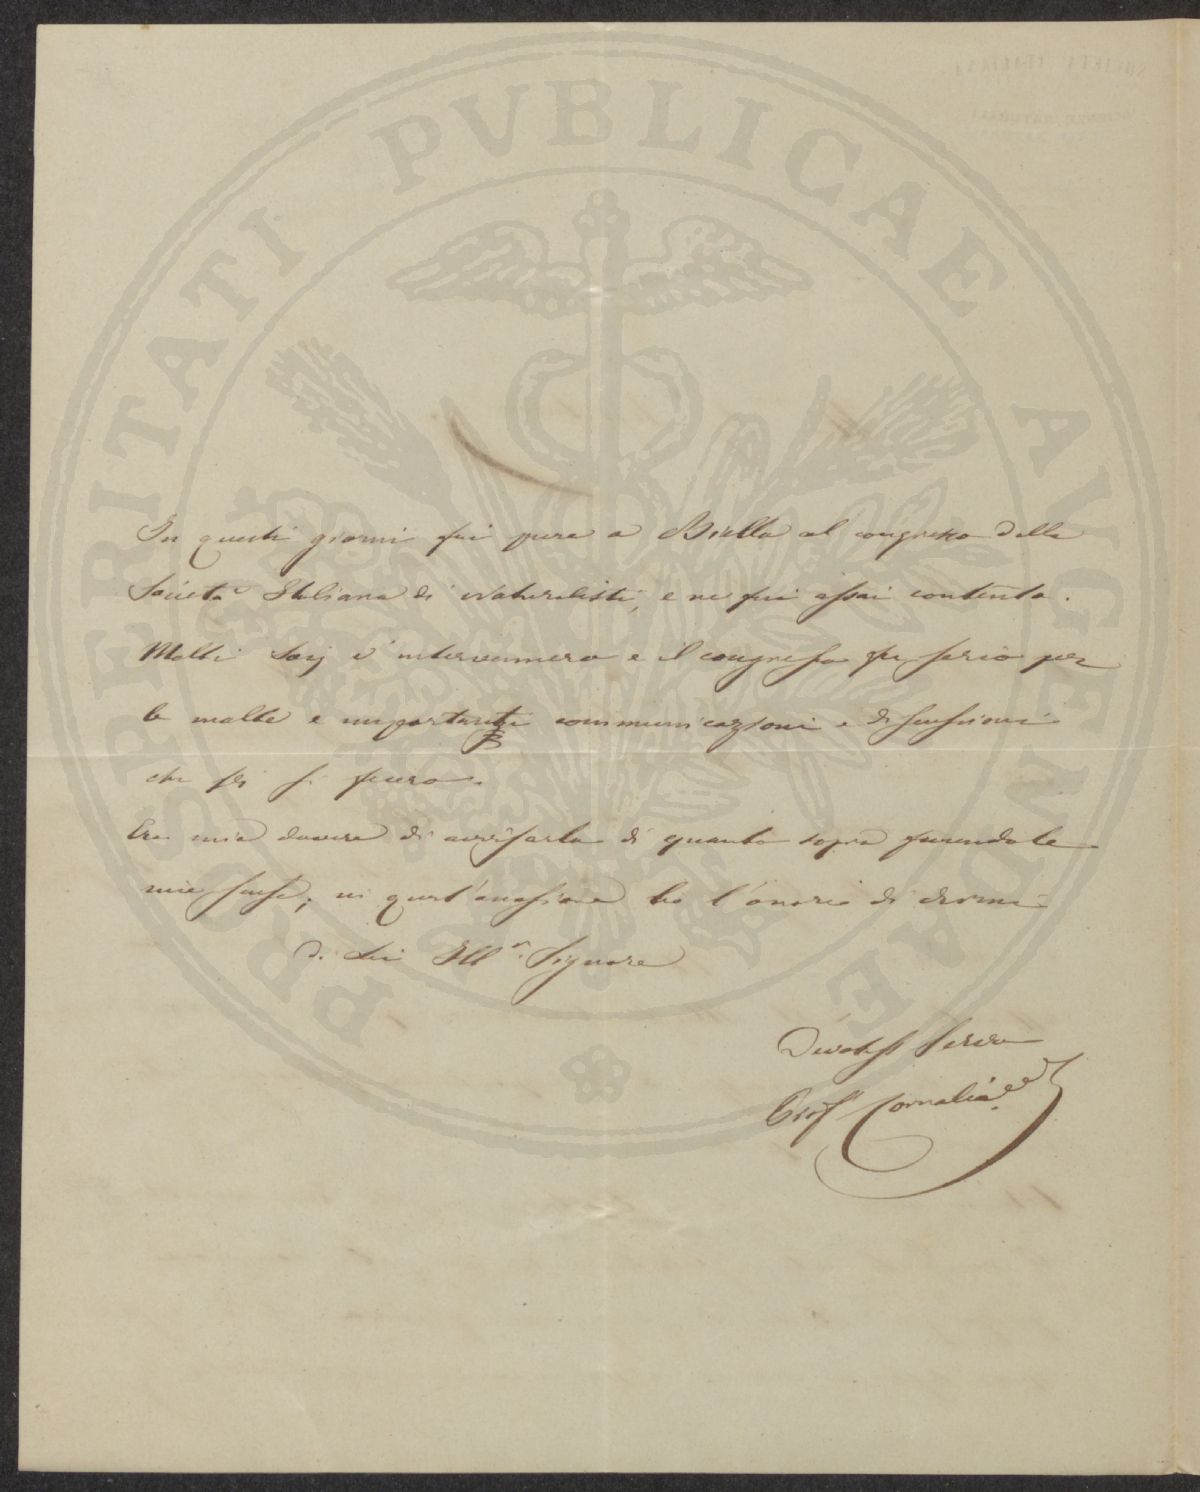 PROSPERITATI PVBLICAE AVGENDAE
In questi giorni fui pure a Biella al congresso della
Società Italiana di Naturalisti, e ne fui assai contento.
Molti Socj v'intervennero e il congresso fu serio per
le molte e importanti communicazioni e discussioni
che si fecero.
Era mio dovere di avvisarla di quanto sopra facendo le
mie scuse; in quest'occasione ho l'onore di dirmi
di Lei Ill.e Signore
Devotiss Servo
Prof Cornalia